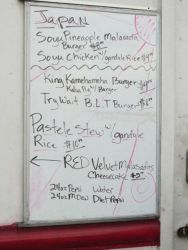 Japan
Soyu Pineapple Malasada
Burger
Soyu Chicken w/ gandule Rice
King Kamehameha Burger
Kalua Pig w/ Burger
Try Wait B.L.T Burger
Pastele Stew w/ gandule
Rice $10
← RED Velvet Malasadas
Cheesecake
24oz Pepsi Water
24oz M.Dew Diet Pepsi